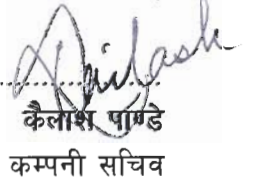 Kailash
कैलाश पाण्डे
कम्पनी सचिव